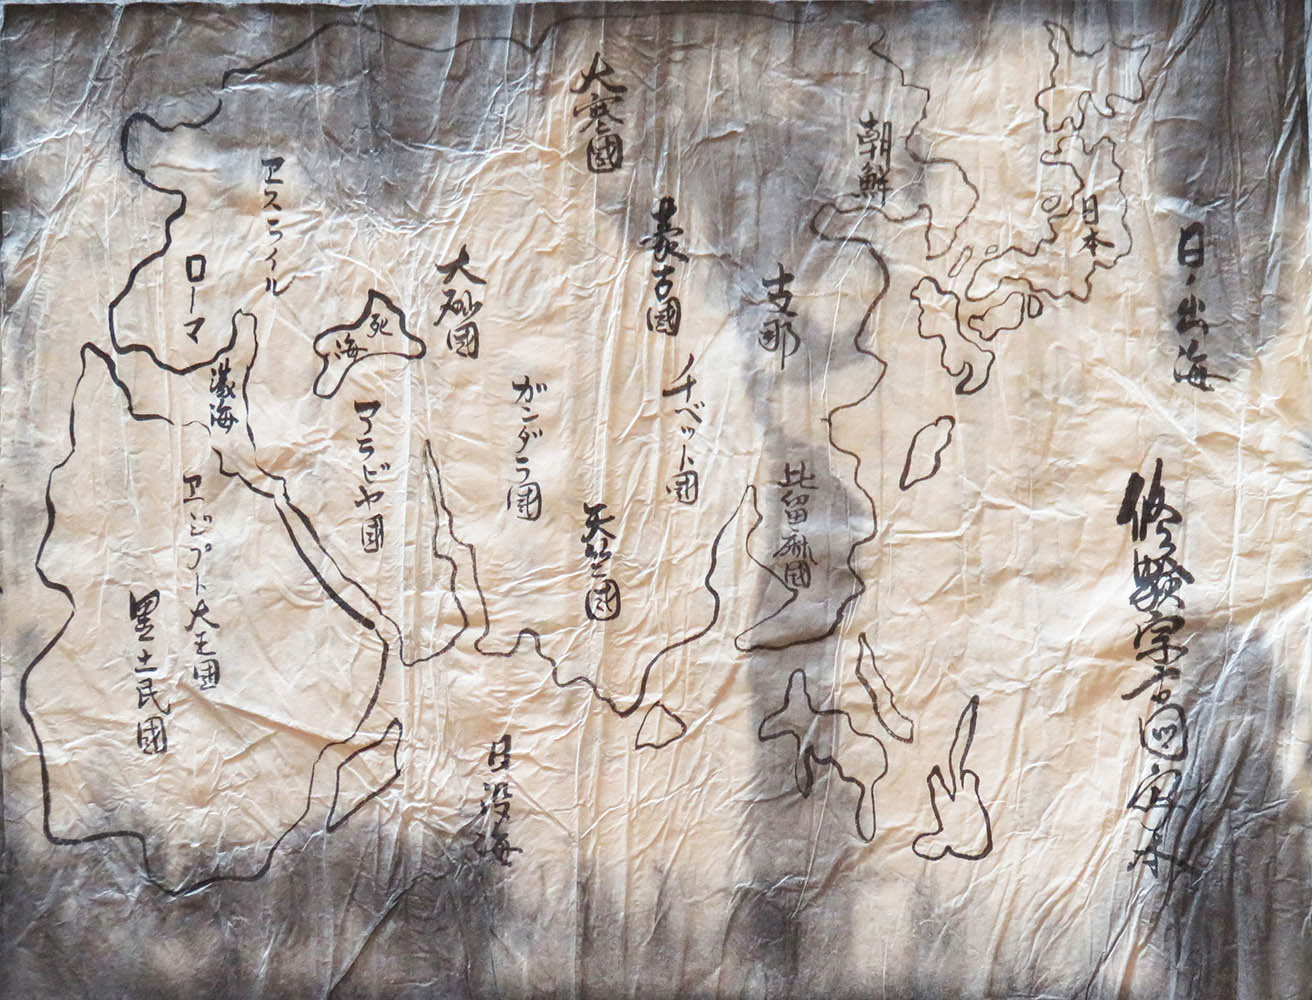 日ノ出海
修験宗古図写本
日本
朝鮮
支那
比留麻國
蒙古國
チベット国
大寒國
天竺國
ガンダラ國
大砂國
日没海
死海
アラビヤ國
エスライル
ローマ
海
エジプト大王國
黒土民國